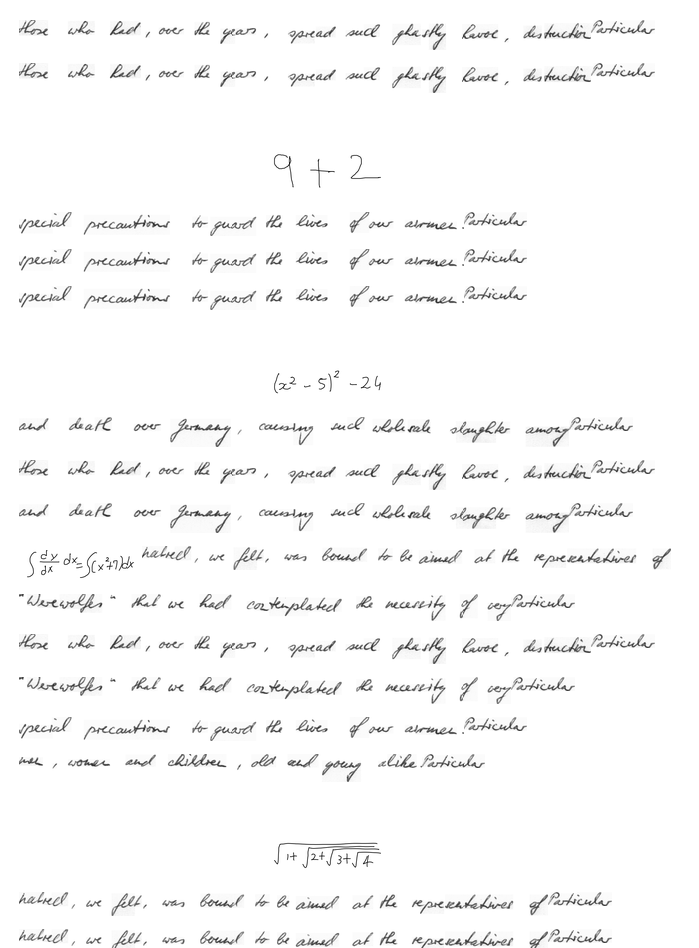 those who had, over the years, spread such ghastly havoc, destruction Particular
those who had, over the years, spread such ghastly havoc, destruction Particular
9 + 2
special precautions to guard the lives of our airmen. Particular
special precautions to guard the lives of our airmen. Particular
special precautions to guard the lives of our airmen. Particular
(x² - 5)² - 24
and death over Germany, causing such wholesale slaughter among Particular
those who had, over the years, spread such ghastly havoc, destruction Particular
and death over Germany, causing such wholesale slaughter among Particular
∫ dy/dx dx = ∫(x²+7)dx hatred, we felt, was bound to be aimed at the representatives of
"Werewolfes" that we had contemplated the necessity of very Particular
those who had, over the years, spread such ghastly havoc, destruction Particular
"Werewolfes" that we had contemplated the necessity of very Particular
special precautions to guard the lives of our airmen. Particular
men, women and children, old and young alike Particular
√(1+√(2+√(3+√4)))
hatred, we felt, was bound to be aimed at the representatives of Particular
hatred, we felt, was bound to be aimed at the representatives of Particular